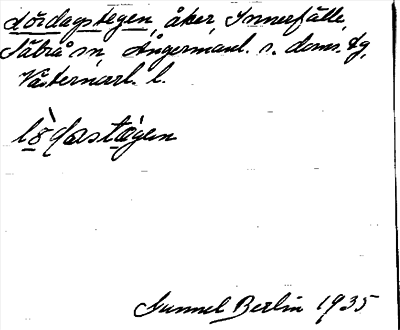 Lördagstegen, åker, Innerfälle,
Säbrå sn, Ångermanl. s. doms. tg,
Västernorrl. l.
Gunnel Berlin 1935